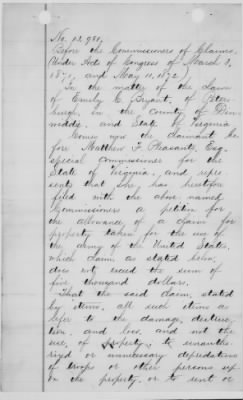 No. 12,980,
Before the Commissioners of Claims,
Under Acts of Congress of March 3,
1871, and May 11, 1872,
In the matter of the Claim
of Emily C. Bryant, of Peters-
burgh, in the county of Din-
widdie, and State of Virginia
Comes now the claimant be
fore Matthew F. Pleasants, Esq.
special commissioner for the
State of Virginia, and repre
sents that she has heretofore
filed with the above named
Commissioners a petition for
the allowance of a claim for
property taken for the use of
the army of the United States,
which claim as stated below,
does not exceed the sum of
five thousand dollars.
That the said claim, stated
by items, all such items as
refer to the damage, destruc
tion, and loss, and not the
use, of property; to unautho
rized or unnecessary depredations
of troops or other persons up
on the property, or to rent or